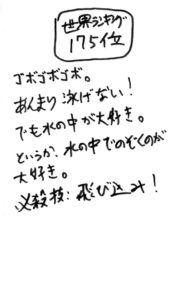 世界ランキング
175位
ゴボゴボゴボ。
あんまり泳げない!
でも水の中が大好き。
というか、水の中でのぞくのが
大好き。
必殺技:飛び込み!